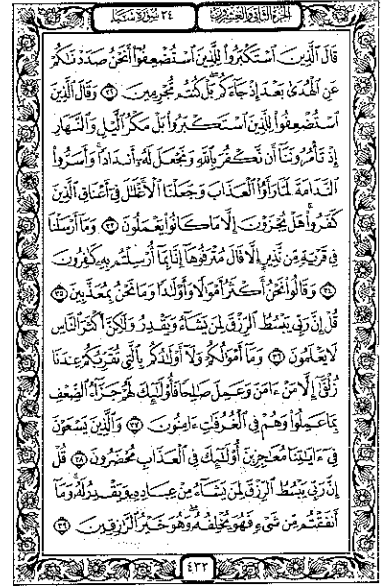 الجزء الثاني والعشرون ٣٤ سورة سبإ
قَالَ ٱلَّذِينَ ٱسْتَكْبَرُوا۟ لِلَّذِينَ ٱسْتُضْعِفُوٓا۟ أَنَحْنُ صَدَدْنَٰكُمْ
عَنِ ٱلْهُدَىٰ بَعْدَ إِذْ جَآءَكُم بَلْ كُنتُم مُّجْرِمِينَ ٣٢ وَقَالَ ٱلَّذِينَ
ٱسْتُضْعِفُوا۟ لِلَّذِينَ ٱسْتَكْبَرُوا۟ بَلْ مَكْرُ ٱلَّيْلِ وَٱلنَّهَارِ
إِذْ تَأْمُرُونَنَآ أَن نَّكْفُرَ بِٱللَّهِ وَنَجْعَلَ لَهُۥٓ أَندَادًا وَأَسَرُّوا۟
ٱلنَّدَامَةَ لَمَّا رَأَوُا۟ ٱلْعَذَابَ وَجَعَلْنَا ٱلْأَغْلَٰلَ فِىٓ أَعْنَاقِ ٱلَّذِينَ
كَفَرُوا۟ هَلْ يُجْزَوْنَ إِلَّا مَا كَانُوا۟ يَعْمَلُونَ ٣٣ وَمَآ أَرْسَلْنَا
فِى قَرْيَةٍ مِّن نَّذِيرٍ إِلَّا قَالَ مُتْرَفُوهَآ إِنَّا بِمَآ أُرْسِلْتُم بِهِۦ كَٰفِرُونَ
٣٤ وَقَالُوا۟ نَحْنُ أَكْثَرُ أَمْوَٰلًا وَأَوْلَٰدًا وَمَا نَحْنُ بِمُعَذَّبِينَ ٣٥
قُلْ إِنَّ رَبِّى يَبْسُطُ ٱلرِّزْقَ لِمَن يَشَآءُ وَيَقْدِرُ وَلَٰكِنَّ أَكْثَرَ ٱلنَّاسِ
لَا يَعْلَمُونَ ٣٦ وَمَآ أَمْوَٰلُكُمْ وَلَآ أَوْلَٰدُكُم بِٱلَّتِى تُقَرِّبُكُمْ عِندَنَا
زُلْفَىٰٓ إِلَّا مَنْ ءَامَنَ وَعَمِلَ صَٰلِحًا فَأُو۟لَٰٓئِكَ لَهُمْ جَزَآءُ ٱلضِّعْفِ
بِمَا عَمِلُوا۟ وَهُمْ فِى ٱلْغُرُفَٰتِ ءَامِنُونَ ٣٧ وَٱلَّذِينَ يَسْعَوْنَ
فِىٓ ءَايَٰتِنَا مُعَٰجِزِينَ أُو۟لَٰٓئِكَ فِى ٱلْعَذَابِ مُحْضَرُونَ ٣٨ قُلْ
إِنَّ رَبِّى يَبْسُطُ ٱلرِّزْقَ لِمَن يَشَآءُ مِنْ عِبَادِهِۦ وَيَقْدِرُ لَهُۥ وَمَآ
أَنفَقْتُم مِّن شَىْءٍ فَهُوَ يُخْلِفُهُۥ وَهُوَ خَيْرُ ٱلرَّٰزِقِينَ ٣٩
٤٣٢